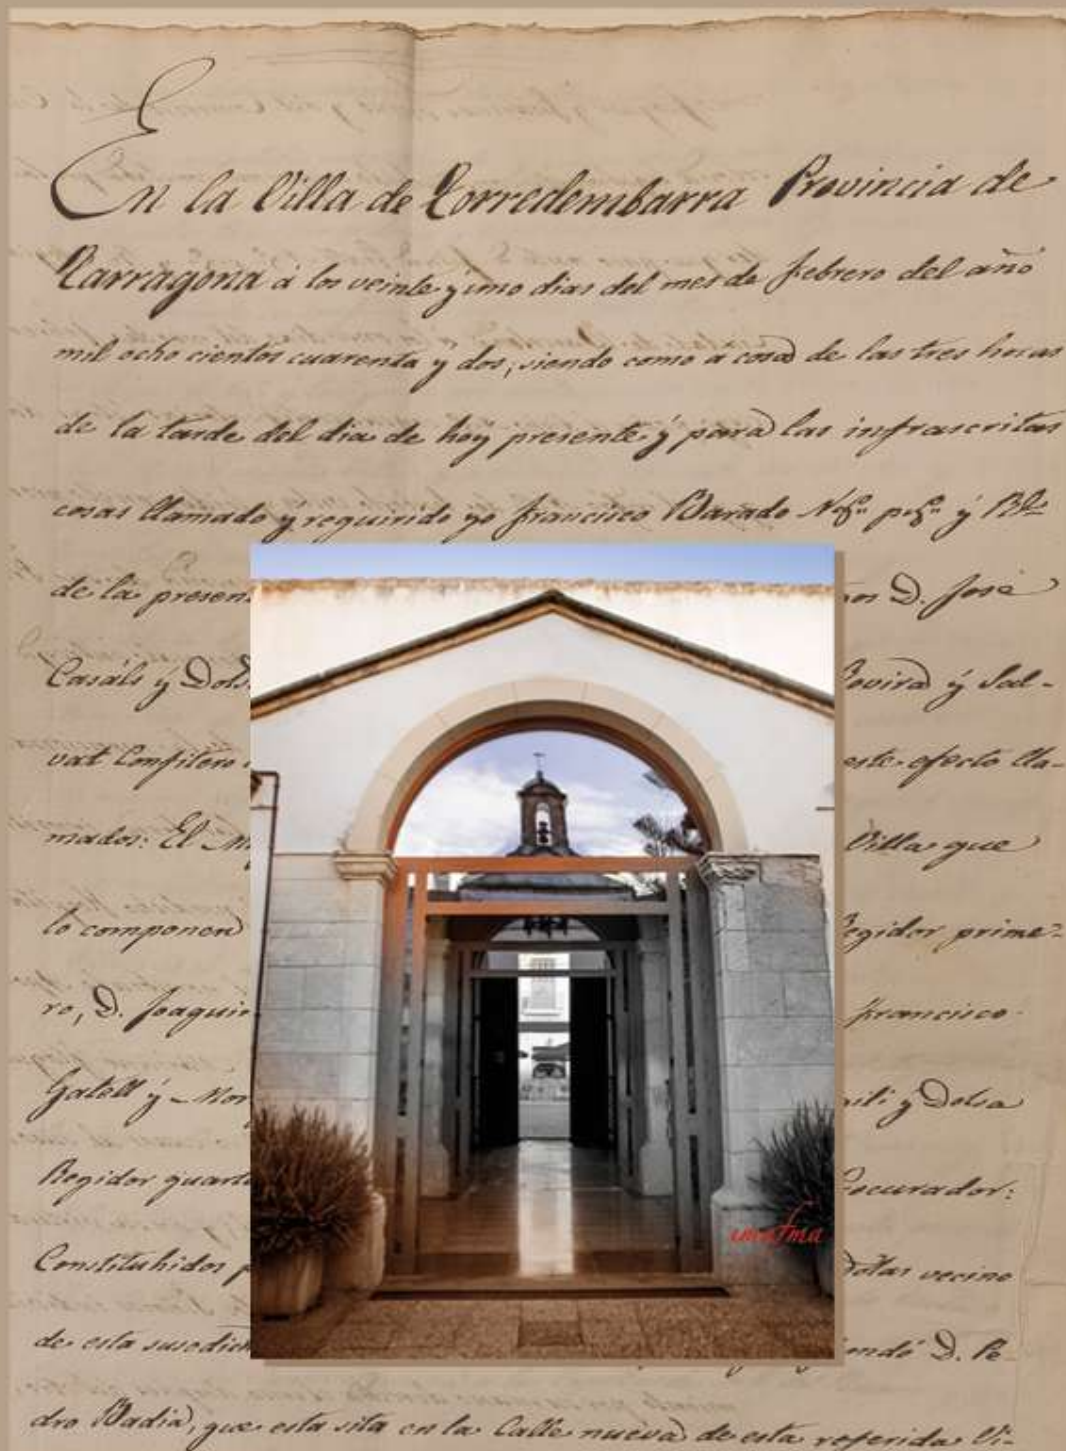 En la Villa de Torredembarra Provincia de
Tarragona á los veinte y uno dias del mes de febrero del año
mil ocho cientos cuarenta y dos, siendo como a cosa de las tres horas
de la tarde del dia de hoy presente y para las infrascritas
cosas llamado y requirido yo Francisco Barado
de la presen D. José
Casáls y Dols Rovira y Sal-
vat Confitero este efecto lla-
mados: El Villa que
lo componen Regidor prime-
ro, D. Joaquin Francisco
Gatell y Mon y Dolsa
Regidor quarto Procurador:
Constituhidos p vecino
de esta susodich D. Pe
dro Badia, que esta sita en la Calle nueva de esta referida Vi-
imatma